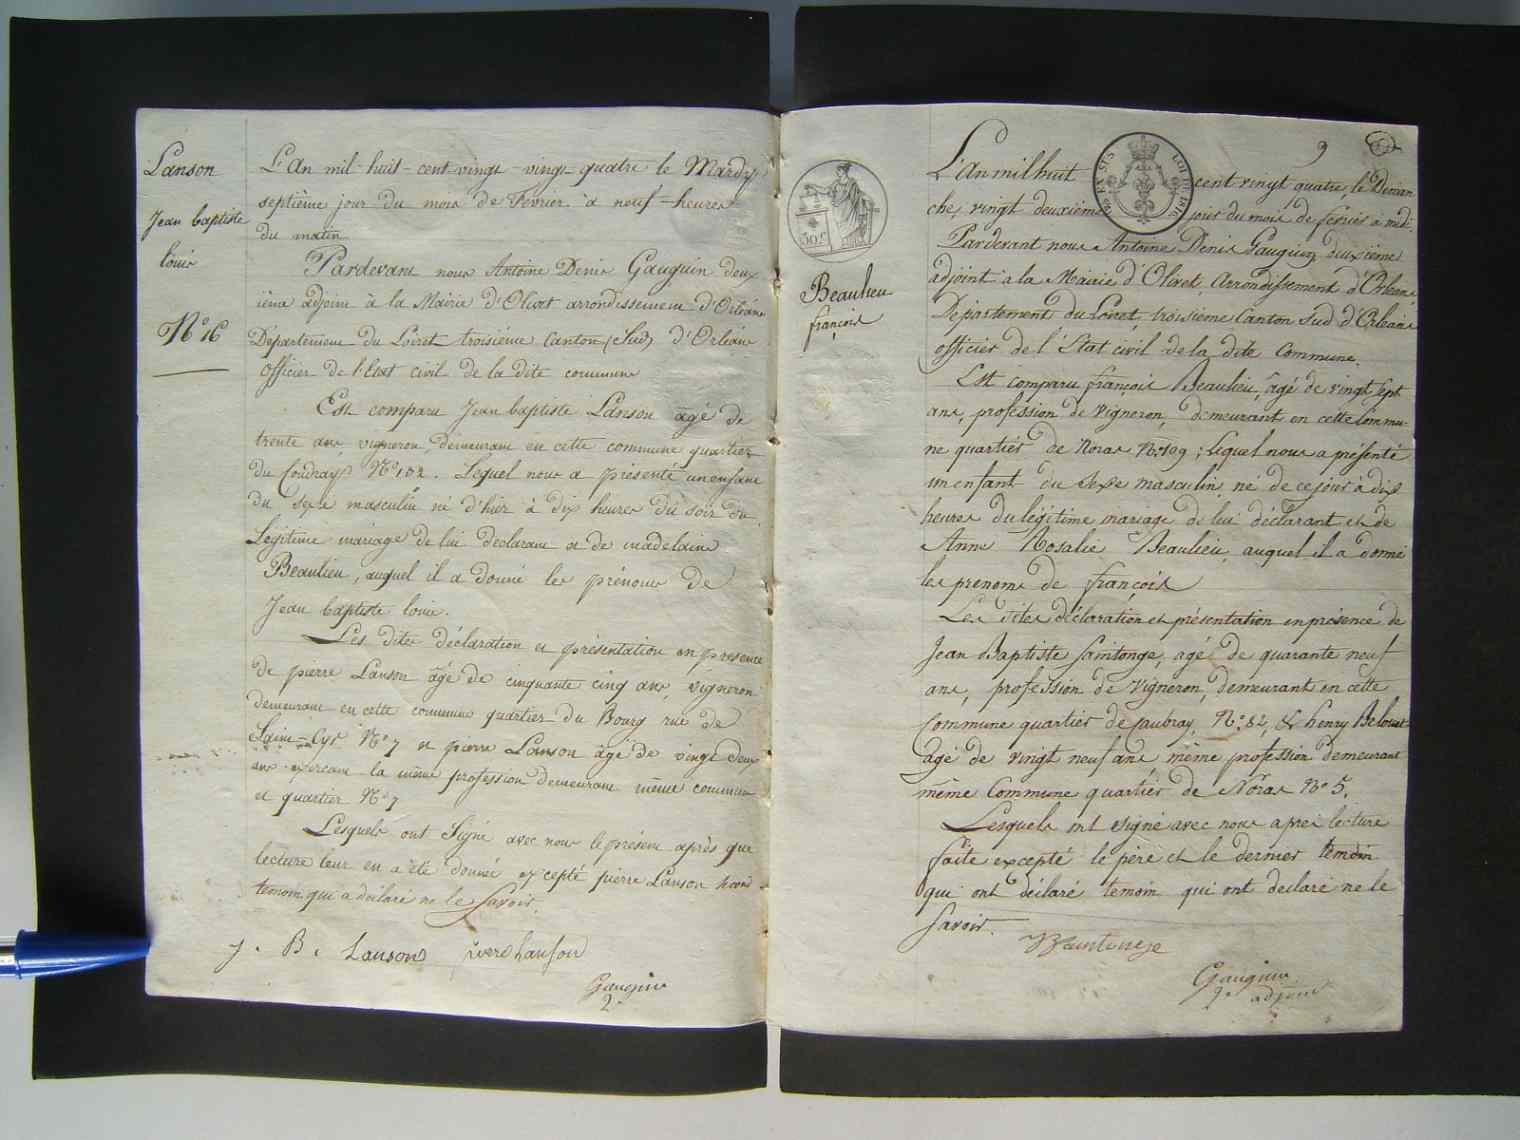 Lanson
Jean baptiste
louis
N° 16
L'An mil-huit-cent-vingt-vingt-quatre le Mardy
septième jour du mois de Février à neuf-heures
du matin
Pardevant nous Antoine Denis Gauguin deux
ième adjoint à la Mairie d'Olivet arrondissement d'Orléans
Département du Loiret troisième Canton (Sud) d'Orléans
officier de l'Etat civil de la dite commune
Est comparu Jean baptiste Lanson âgé de
trente ans, vigneron, demeurant en cette commune quartier
du Coudray N° 102. Lequel nous a présenté un enfant
du sexe masculin né d'hier à dix heures du soir du
Légitime mariage de lui déclarant et de madelaine
Beaulieu, auquel il a donné les prénoms de
Jean baptiste louis.
Les dites déclaration et présentation en présence
de pierre Lanson âgé de cinquante cinq ans, vigneron
demeurant en cette commune quartier du Bourg rue de
Saint-Cyr N° 7 et pierre Lanson âgé de vingt deux
ans exercant la même profession demeurant même commune
et quartier N° 7
Lesquels ont Signé avec nous le présent après que
lecture leur en a été donné excepté pierre Lanson
temoin qui a déclaré ne le Savoir.
J. B. Lanson pierre lanson
Gauguin
2e
9
L'An mil huit cent vingt quatre, le Diman
che, vingt deuxième jour du mois de fevrier a midi
Pardevant nous Antoine Denis Gauguin deuxième
adjoint à la Mairie d'Olivet, Arrondissement d'Orleans
Département du Loiret, troisième Canton Sud d'Orleans
officier de l'Etat civil de la dite Commune
50 c.
Beaulieu
françois
Est comparu françois Beaulieu, âgé de vingt sept
ans, profession de vigneron, demeurant en cette Commu-
ne quartier de Noras N° 109; lequel nous a présenté
un enfant du Sexe masculin, né de ce jour à dix
heures du légitime mariage de lui déclarant et de
Anne Rosalie Beaulieu, auquel il a donné
les prenoms de françois
Les dites déclaration et présentation en présence de
Jean Baptiste Saintonge, agé de quarante neuf
ans, profession de Vigneron, demeurant en cette
Commune quartier de Caubray, N° 82, & henry Belouet
âgé de vingt neuf ans même profession demeurant
même Commune quartier de Noras N° 5.
Lesquels ont signé avec nous aprés lecture
faite excepté le père et le dernier temoin
qui ont déclaré temoin qui ont declaré ne le
Savoir.
Gauguin
2e adjoint